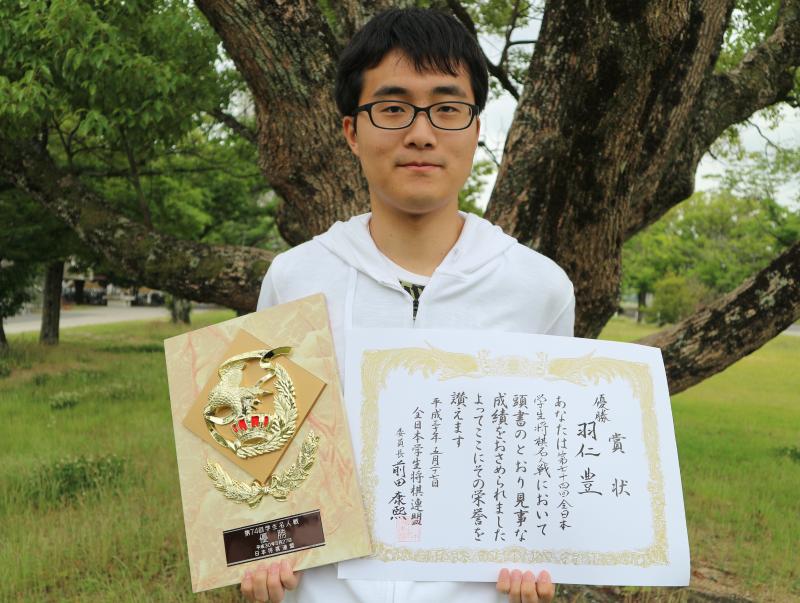 第74回学生名人戦
優勝
平成30年5月27日
日本将棋連盟
賞状
優勝
羽仁 豊
あなたは第七十四回全日本
学生将棋名人戦において
頭書のとおり見事な
成績をおさめられました
よってここにその栄誉を
讃えます
平成三十年 五月二十七日
全日本学生将棋連盟
委員長 前田康熙